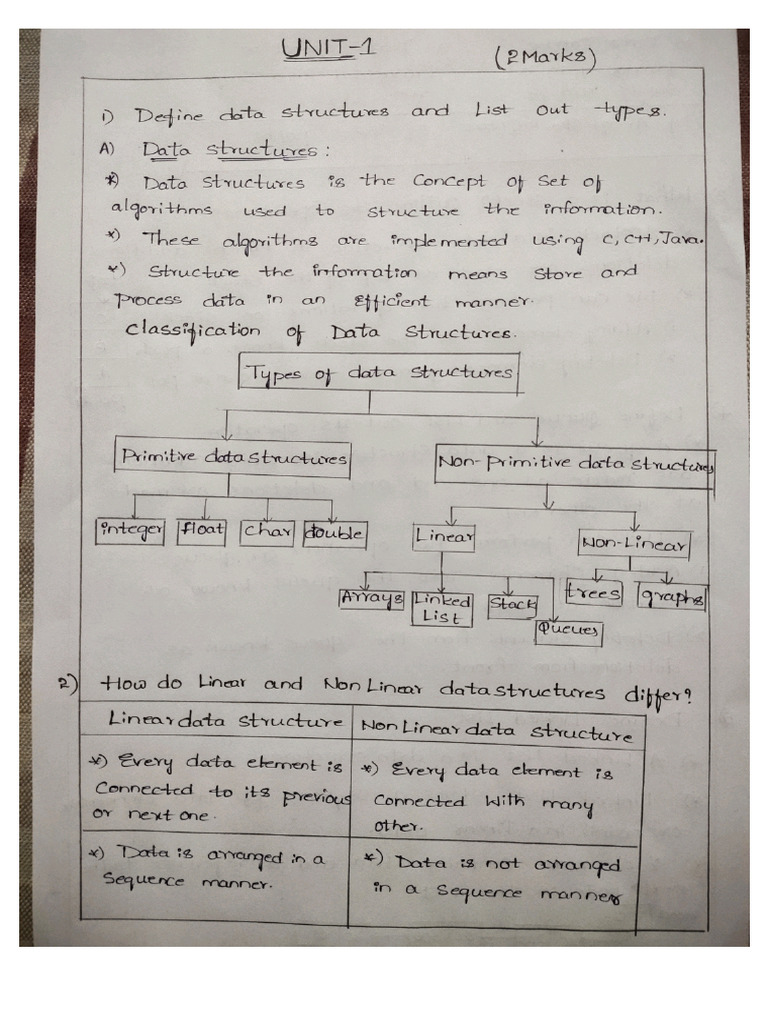 UNIT-1
(2 Marks)
1) Define data structures and List out types.
A) Data structures:
*) Data structures is the concept of set of
algorithms used to structure the information.
*) These algorithms are implemented using C, C++, Java.
*) Structure the information means store and
process data in an Efficient manner.
Classification of Data Structures.
Types of data structures
Primitive data structures
Non-Primitive data structures
integer float char double
Linear
Non-Linear
Arrays Linked List Stack Queues
trees graphs
2) How do Linear and Non Linear data structures differ?
Linear data structure
Non Linear data structure
*) Every data element is
connected to its previous
or next one.
*) Every data element is
connected with many
other.
*) Data is arranged in a
sequence manner.
*) Data is not arranged
in a sequence manner